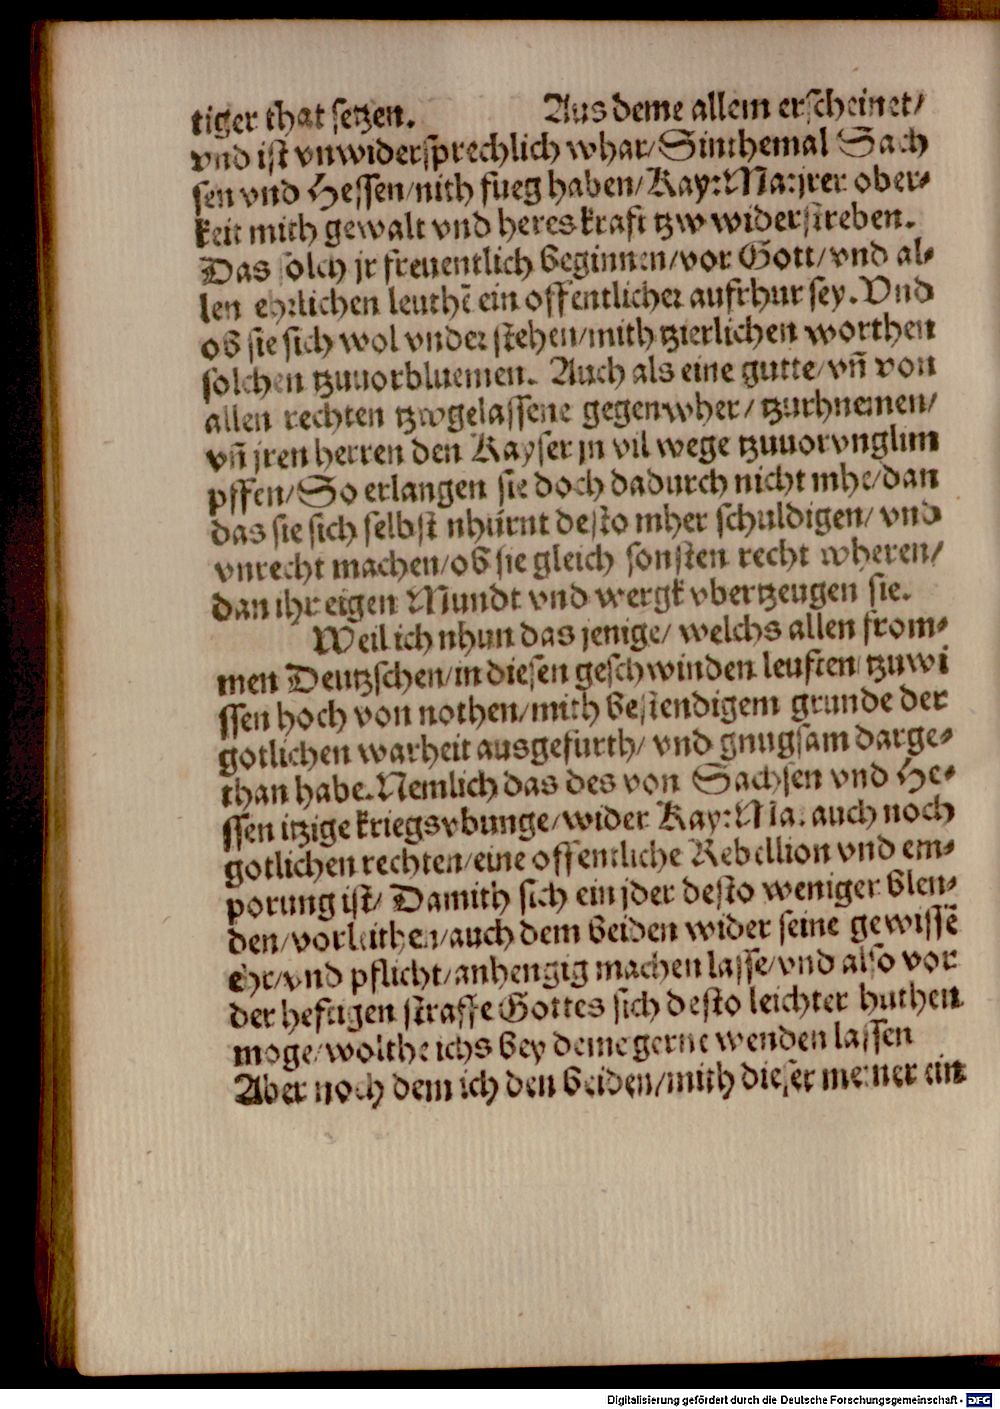 tiger that setzen. Aus deme allem erscheinet/
vnd ist vnwidersprechlich whar/ Sinthemal Sach
sen vnd Hessen/nith fueg haben/Kay: Ma: jrer ober⸗
keit mith gewalt vnd heres kraft tzw widerstreben.
Das solch jr freuentlich beginnen/vor Gott/vnd al⸗
len ehrlichen leuthē ein offentlicher aufrhur sey. Vnd
ob sie sich wol vnder stehen/mith tzierlichen worthen
solchen tzuuorbluemen. Auch als eine gutte/vñ von
allen rechten tzwgelassene gegenwher/ tzurhnemen/
vñ jren herren den Kayser jn vil wege tzuuorvnglim
pffen/ So erlangen sie doch dadurch nicht mhe/dan
das sie sich selbst nhurnt desto mher schuldigen/ vnd
vnrecht machen/ob sie gleich sonsten recht wheren/
dan ihr eigen Mundt vnd wergk vbertzeugen sie.
Weil ich nhun das jenige/ welchs allen from⸗
men Deutzschen/in diesen geschwinden leuften tzuwi
ssen hoch von nothen/mith bestendigem grunde der
gotlichen warheit ausgefurth/ vnd gnugsam darge⸗
than habe. Nemlich das des von Sachsen vnd He⸗
ssen itzige kriegsvbunge/wider Kay: Ma. auch noch
gotlichen rechten/eine offentliche Rebellion vnd em⸗
porung ist/ Damith sich ein jder desto weniger blen⸗
den/vorleithen/auch dem beiden wider seine gewissē
ehr/vnd pflicht/anhengig machen lasse/vnd also vor
der heftigen straffe Gottes sich desto leichter huthen
moge/wolthe ichs bey deme gerne wenden lassen
Aber noch dem ich den beiden/mith dieser meiner ein
Digitalisierung gefördert durch die Deutsche Forschungsgemeinschaft - DFG